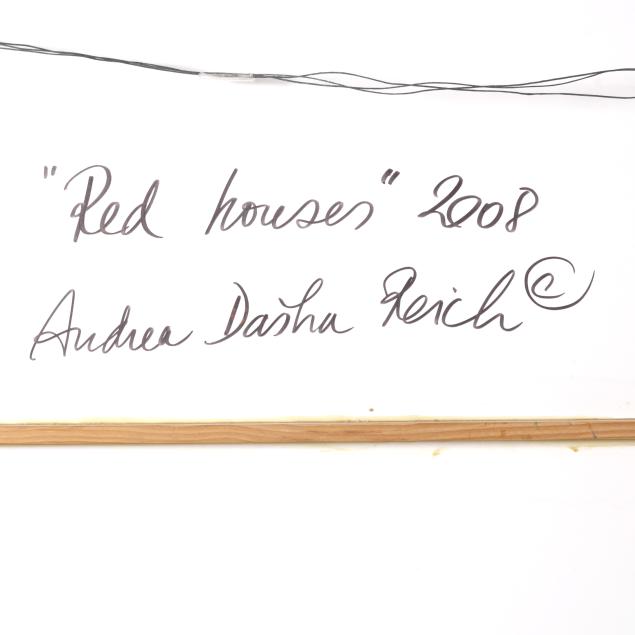 "Red houses" 2008
Andrea Dasha Reich ©